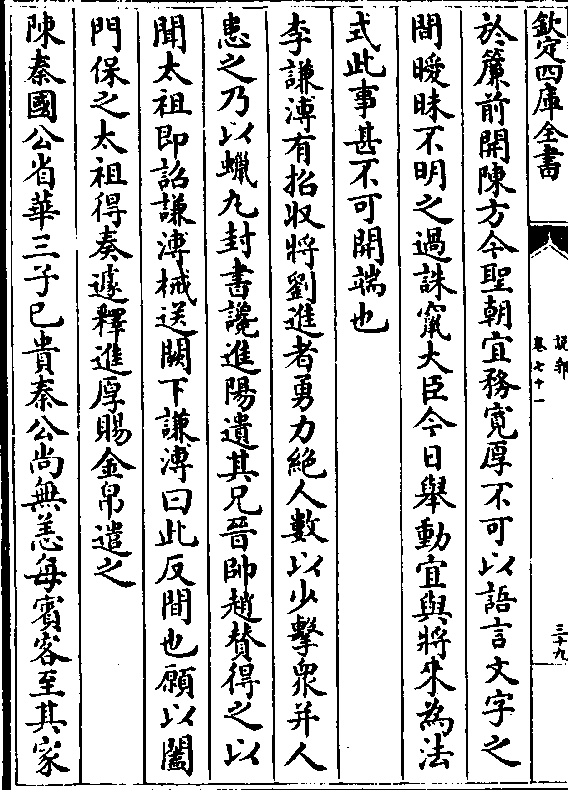 欽定四庫全書
說郛
卷七十一
三十九
於簾前開陳方今聖朝宜務寛厚不可以語言文字之
間曖昧不明之過誅竄大臣今日舉動宜與將來為法
式此事甚不可開端也
李謙溥有招收將劉進者勇力絶人數以少擊衆并人
患之乃以蠟丸封書讒進陽遺其兄晉帥趙賛得之以
聞太祖即詔謙溥械送闕下謙溥曰此反間也願以闔
門保之太祖得奏遽釋進厚賜金帛遣之
陳秦國公省華三子已貴秦公尚無恙每賓客至其家